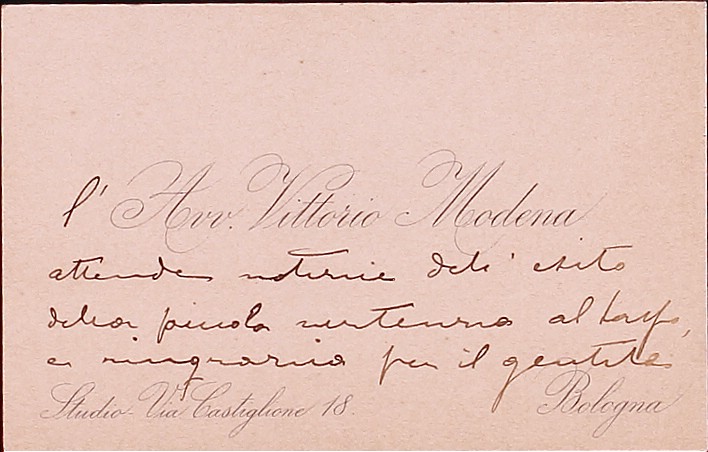 l' Avv. Vittorio Modena
attende notizie dell' esito
della piccola vertenza
e ringrazia per il gentile
Studio - Via Castiglione 18. Bologna